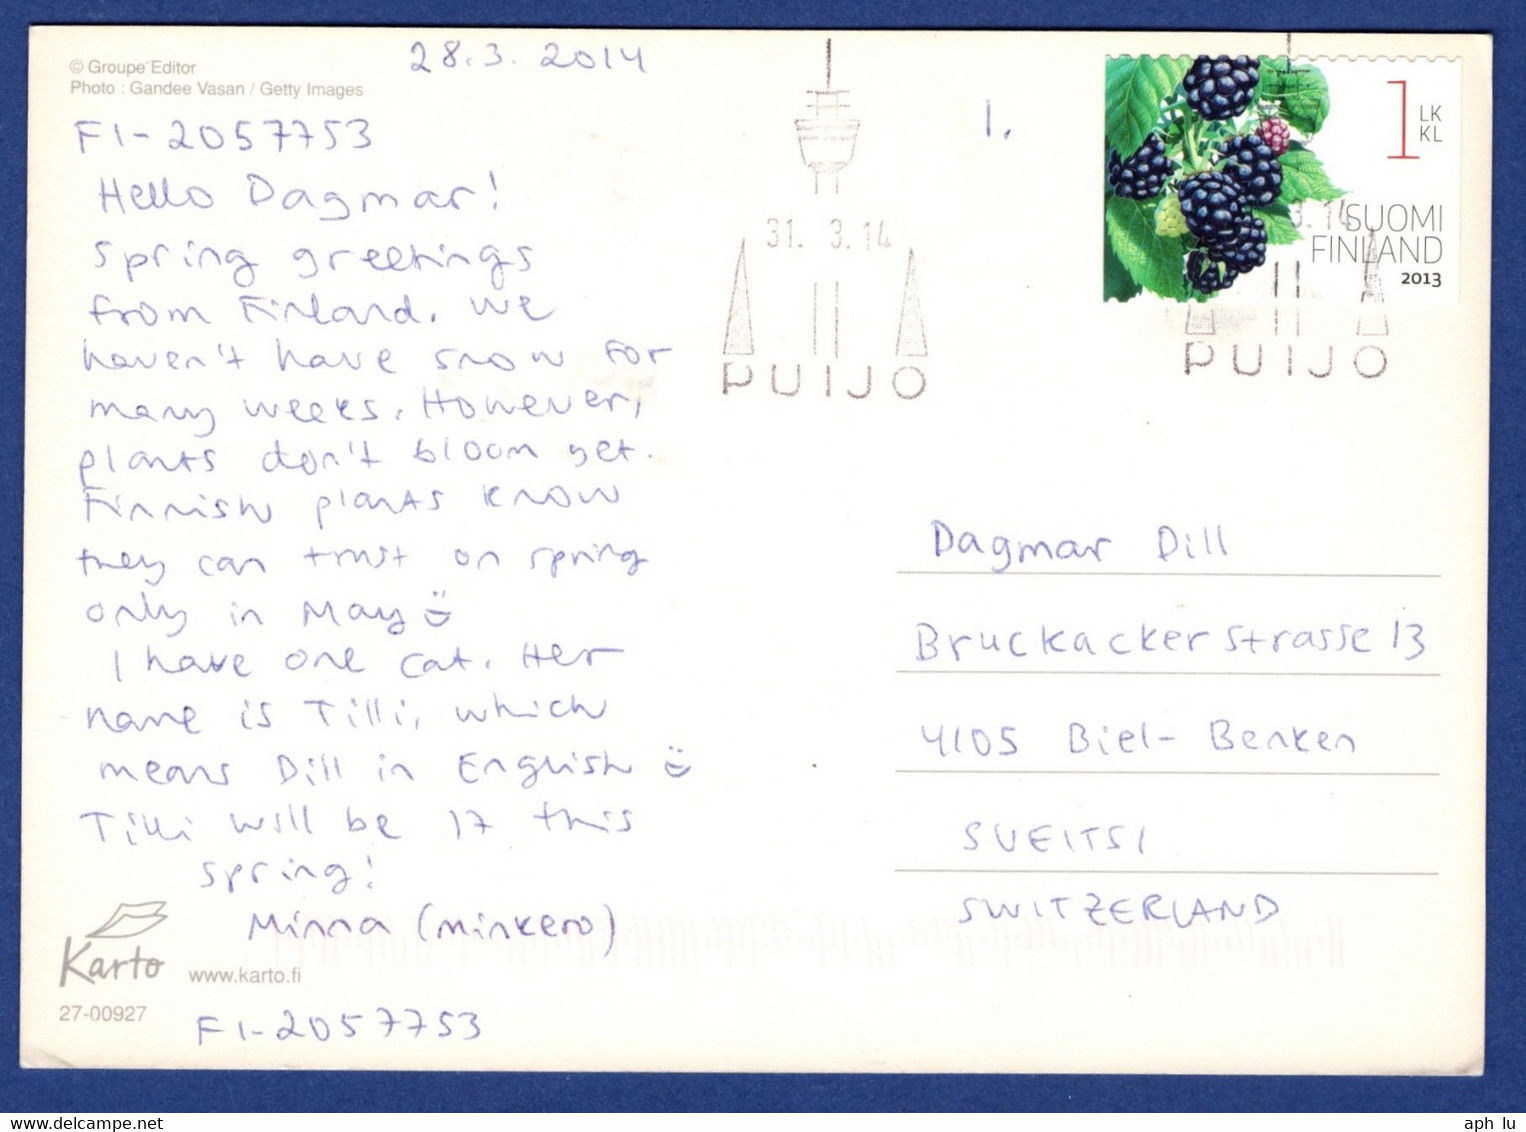 © Groupe Editor
Photo : Gandee Vasan / Getty Images
28.3. 2014
FI-2057753
Hello Dagmar!
Spring greetings
from Finland. We
haven't have snow for
many weeks. However,
plants don't bloom yet.
Finnish plants know
they can trust on spring
only in May
I have one cat. Her
name is Tilli, which
means Dill in English
Tilli will be 17 this
spring!
Minna (minkero)
Karto
www.karto.fi
27-00927
FI-2057753
1.
31. 3.14
PUIJO
1 LK
KL
SUOMI
FINLAND
2013
3.14
PUIJO
Dagmar Dill
Bruckackerstrasse 13
4105 Biel-Benken
SVEITSI
SWITZERLAND
www.delcampe.net
aph lu